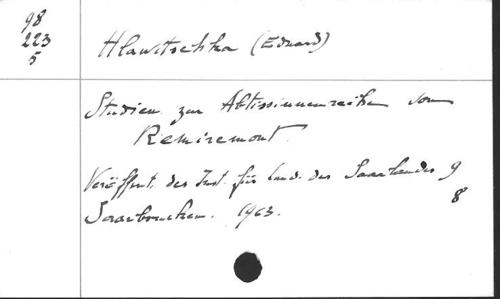 98
223
5
Hlawitschka (Eduard)
Studien zur Äbtissinnenreihe von
Remiremont.
Veröffent. des Inst. für Land. des Saarlandes 9
8
Saarbrucken. 1963.